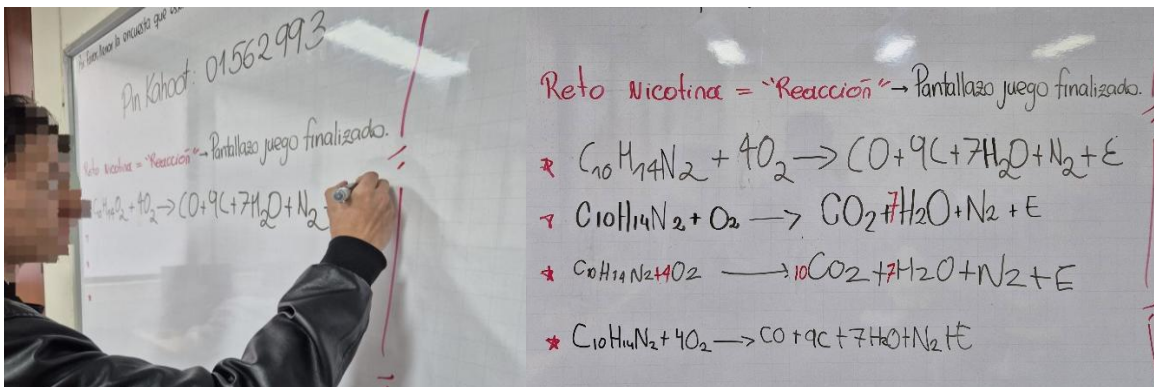 Por favor llenar la encuesta que
Pin Kahoot: 01562993
Reto Nicotina = "Reacción" → Pantallazo juego finalizado.
C₁₀H₁₄O₂ + 4O₂ → CO + 9C + 7H₂O + N₂
Reto Nicotina = "Reacción" → Pantallazo juego finalizado.
* C₁₀H₁₄N₂ + 4O₂ → CO + 9C + 7H₂O + N₂ + E
* C₁₀H₁₄N₂ + O₂ → CO₂ + 7H₂O + N₂ + E
* C₁₀H₁₄N₂ + 4O₂ → 10CO₂ + 7H₂O + N₂ + E
* C₁₀H₁₄N₂ + 4O₂ → CO + 9C + 7H₂O + N₂ + E